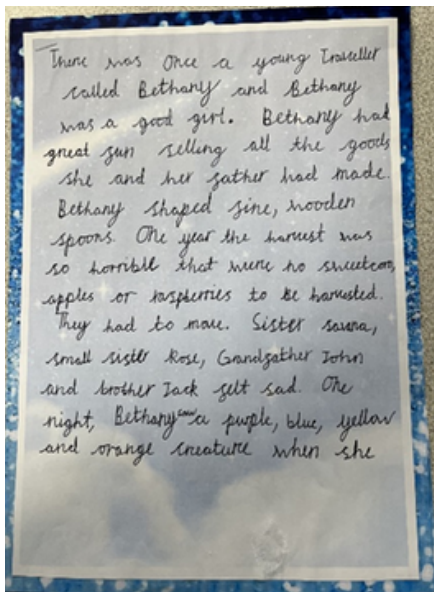 There was once a young Traveller
called Bethany and Bethany
was a good girl. Bethany had
great fun selling all the goods
she and her father had made.
Bethany shaped fine, wooden
spoons. One year the harvest was
so horrible that were no sweetcorn,
apples or raspberries to be harvested.
They had to move. Sister
small sister Rose, Grandfather John
and brother Jack felt sad. One
night, Bethany saw a purple, blue, yellow
and orange creature when she